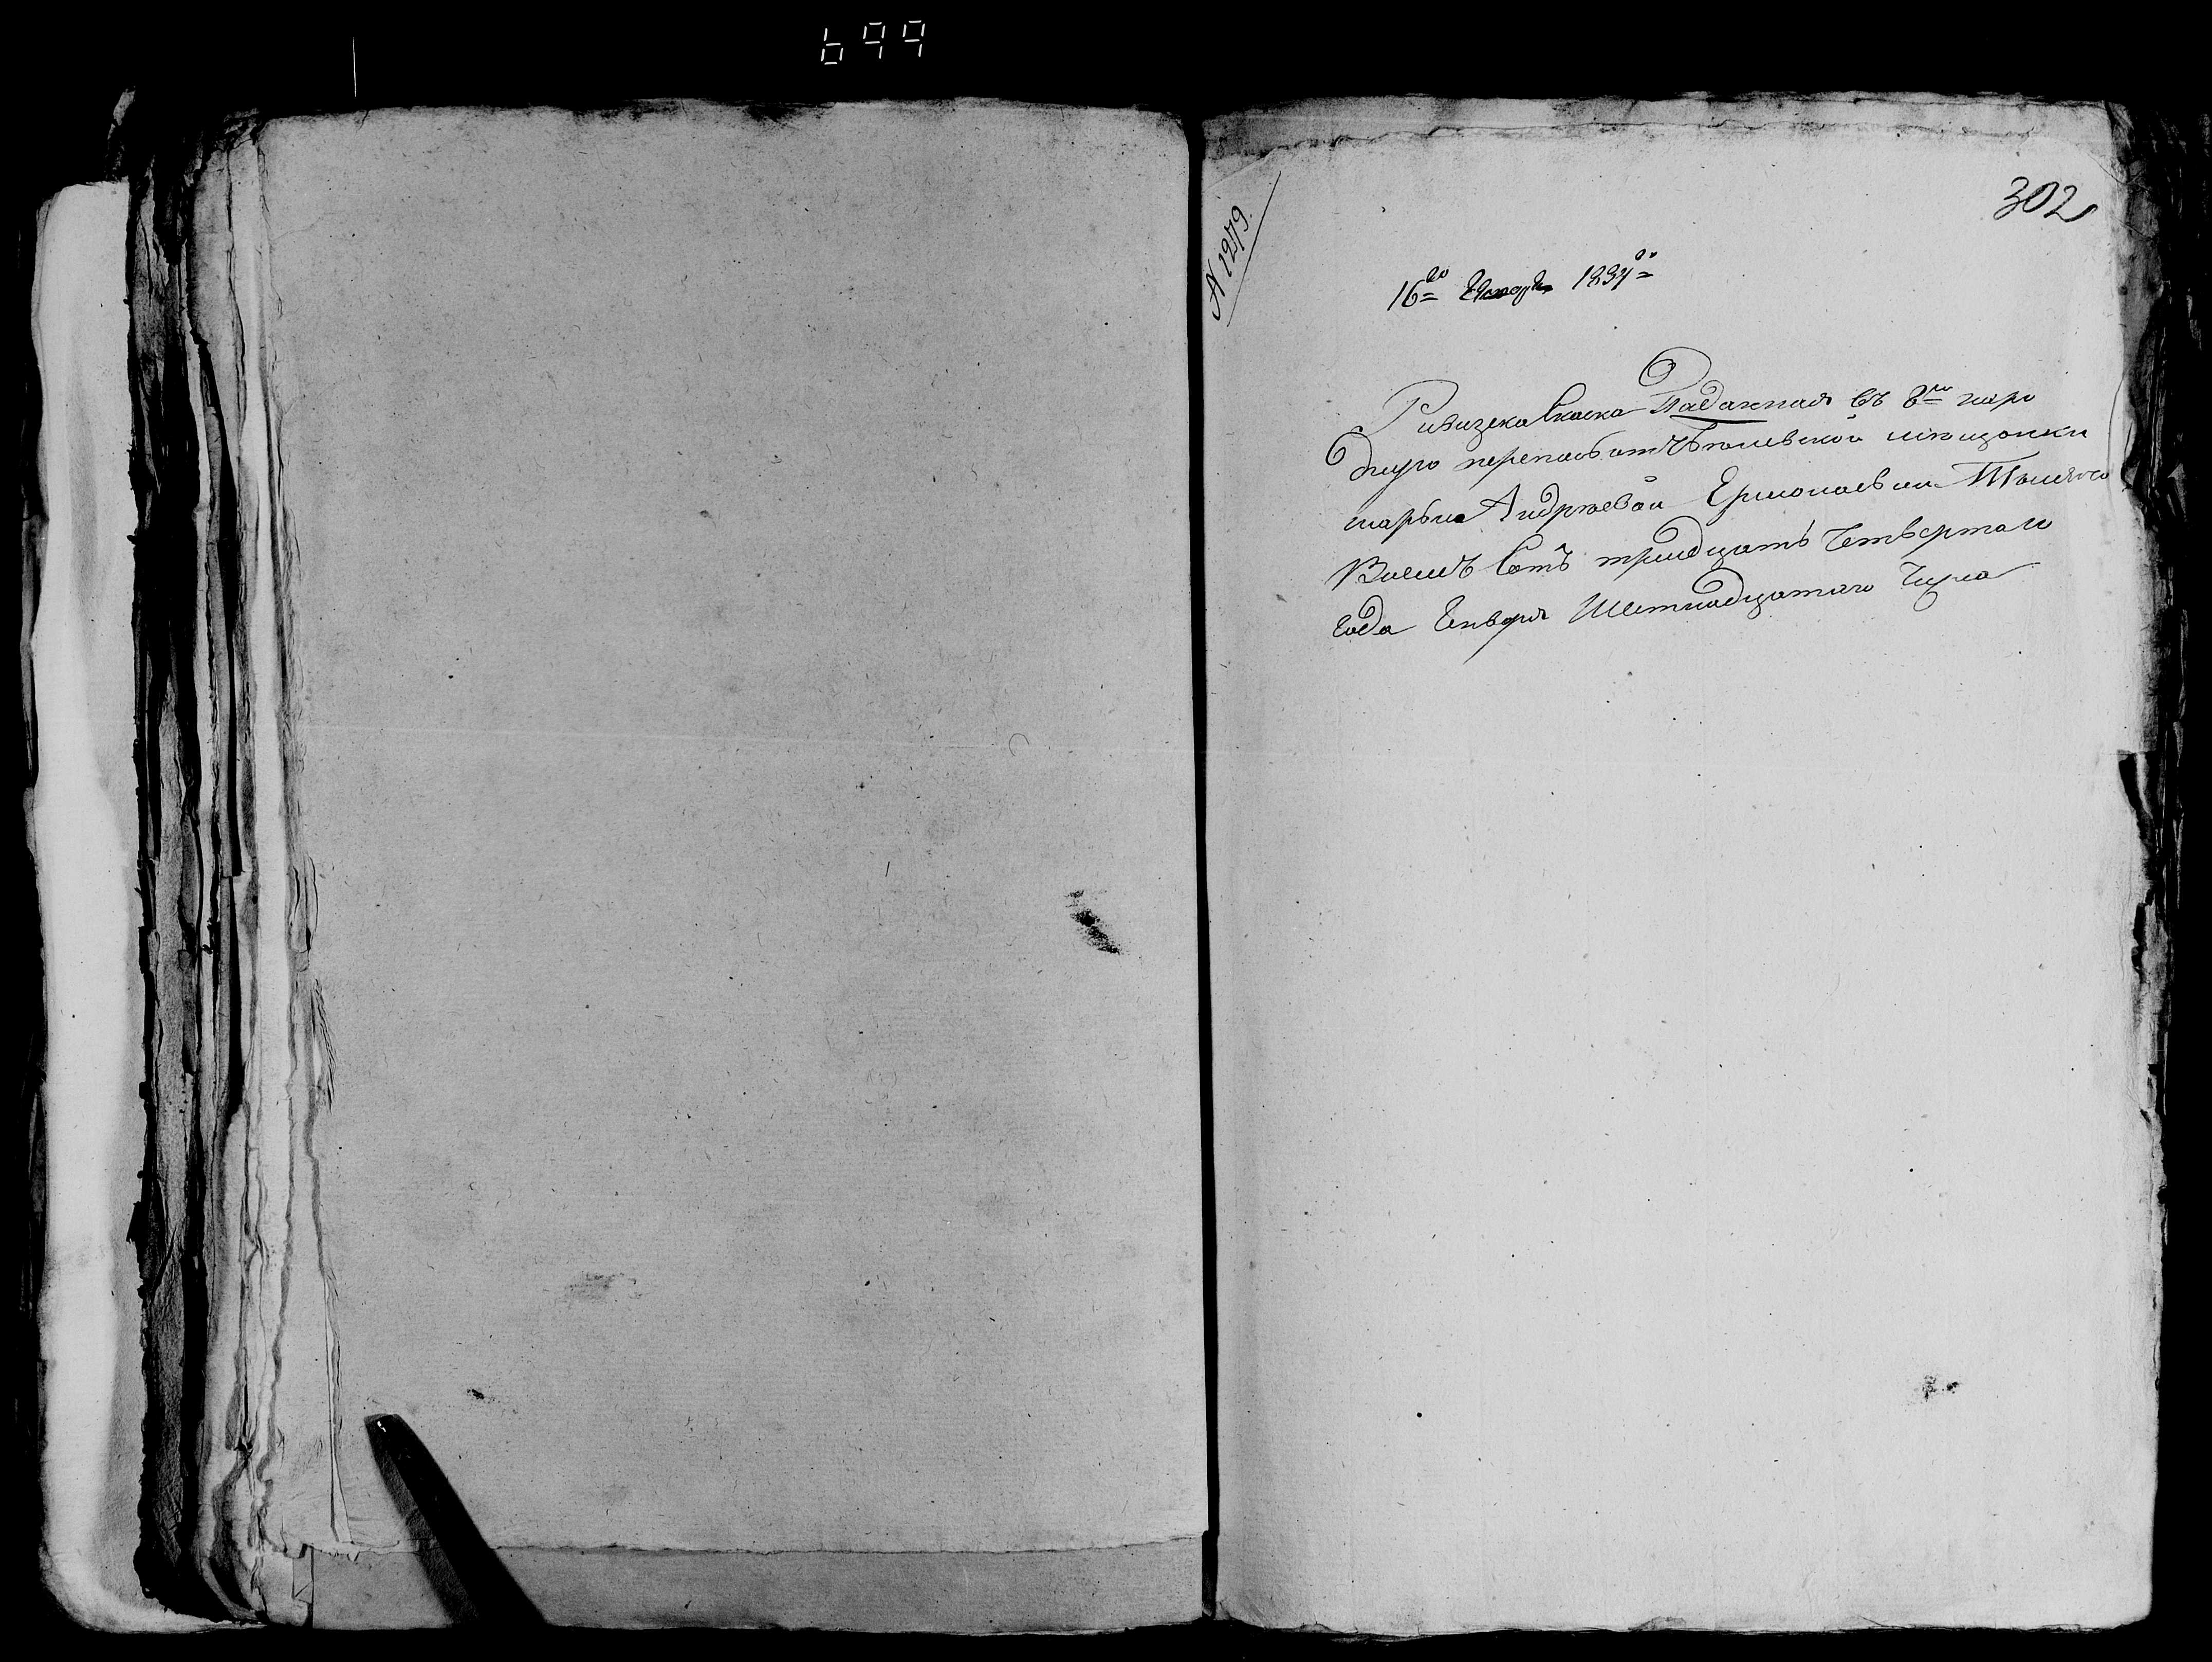 699
302
№ 1279.
16го Генваря 1834го
Ривизска Скаска Падахная въ 8ю наро
дную перепись от мещонки
марьи Андреевой Ермолаевои Тысяча
Восемь Сотъ тридцать Четвертаго
Года Генваря Шестнадцатаго Числа